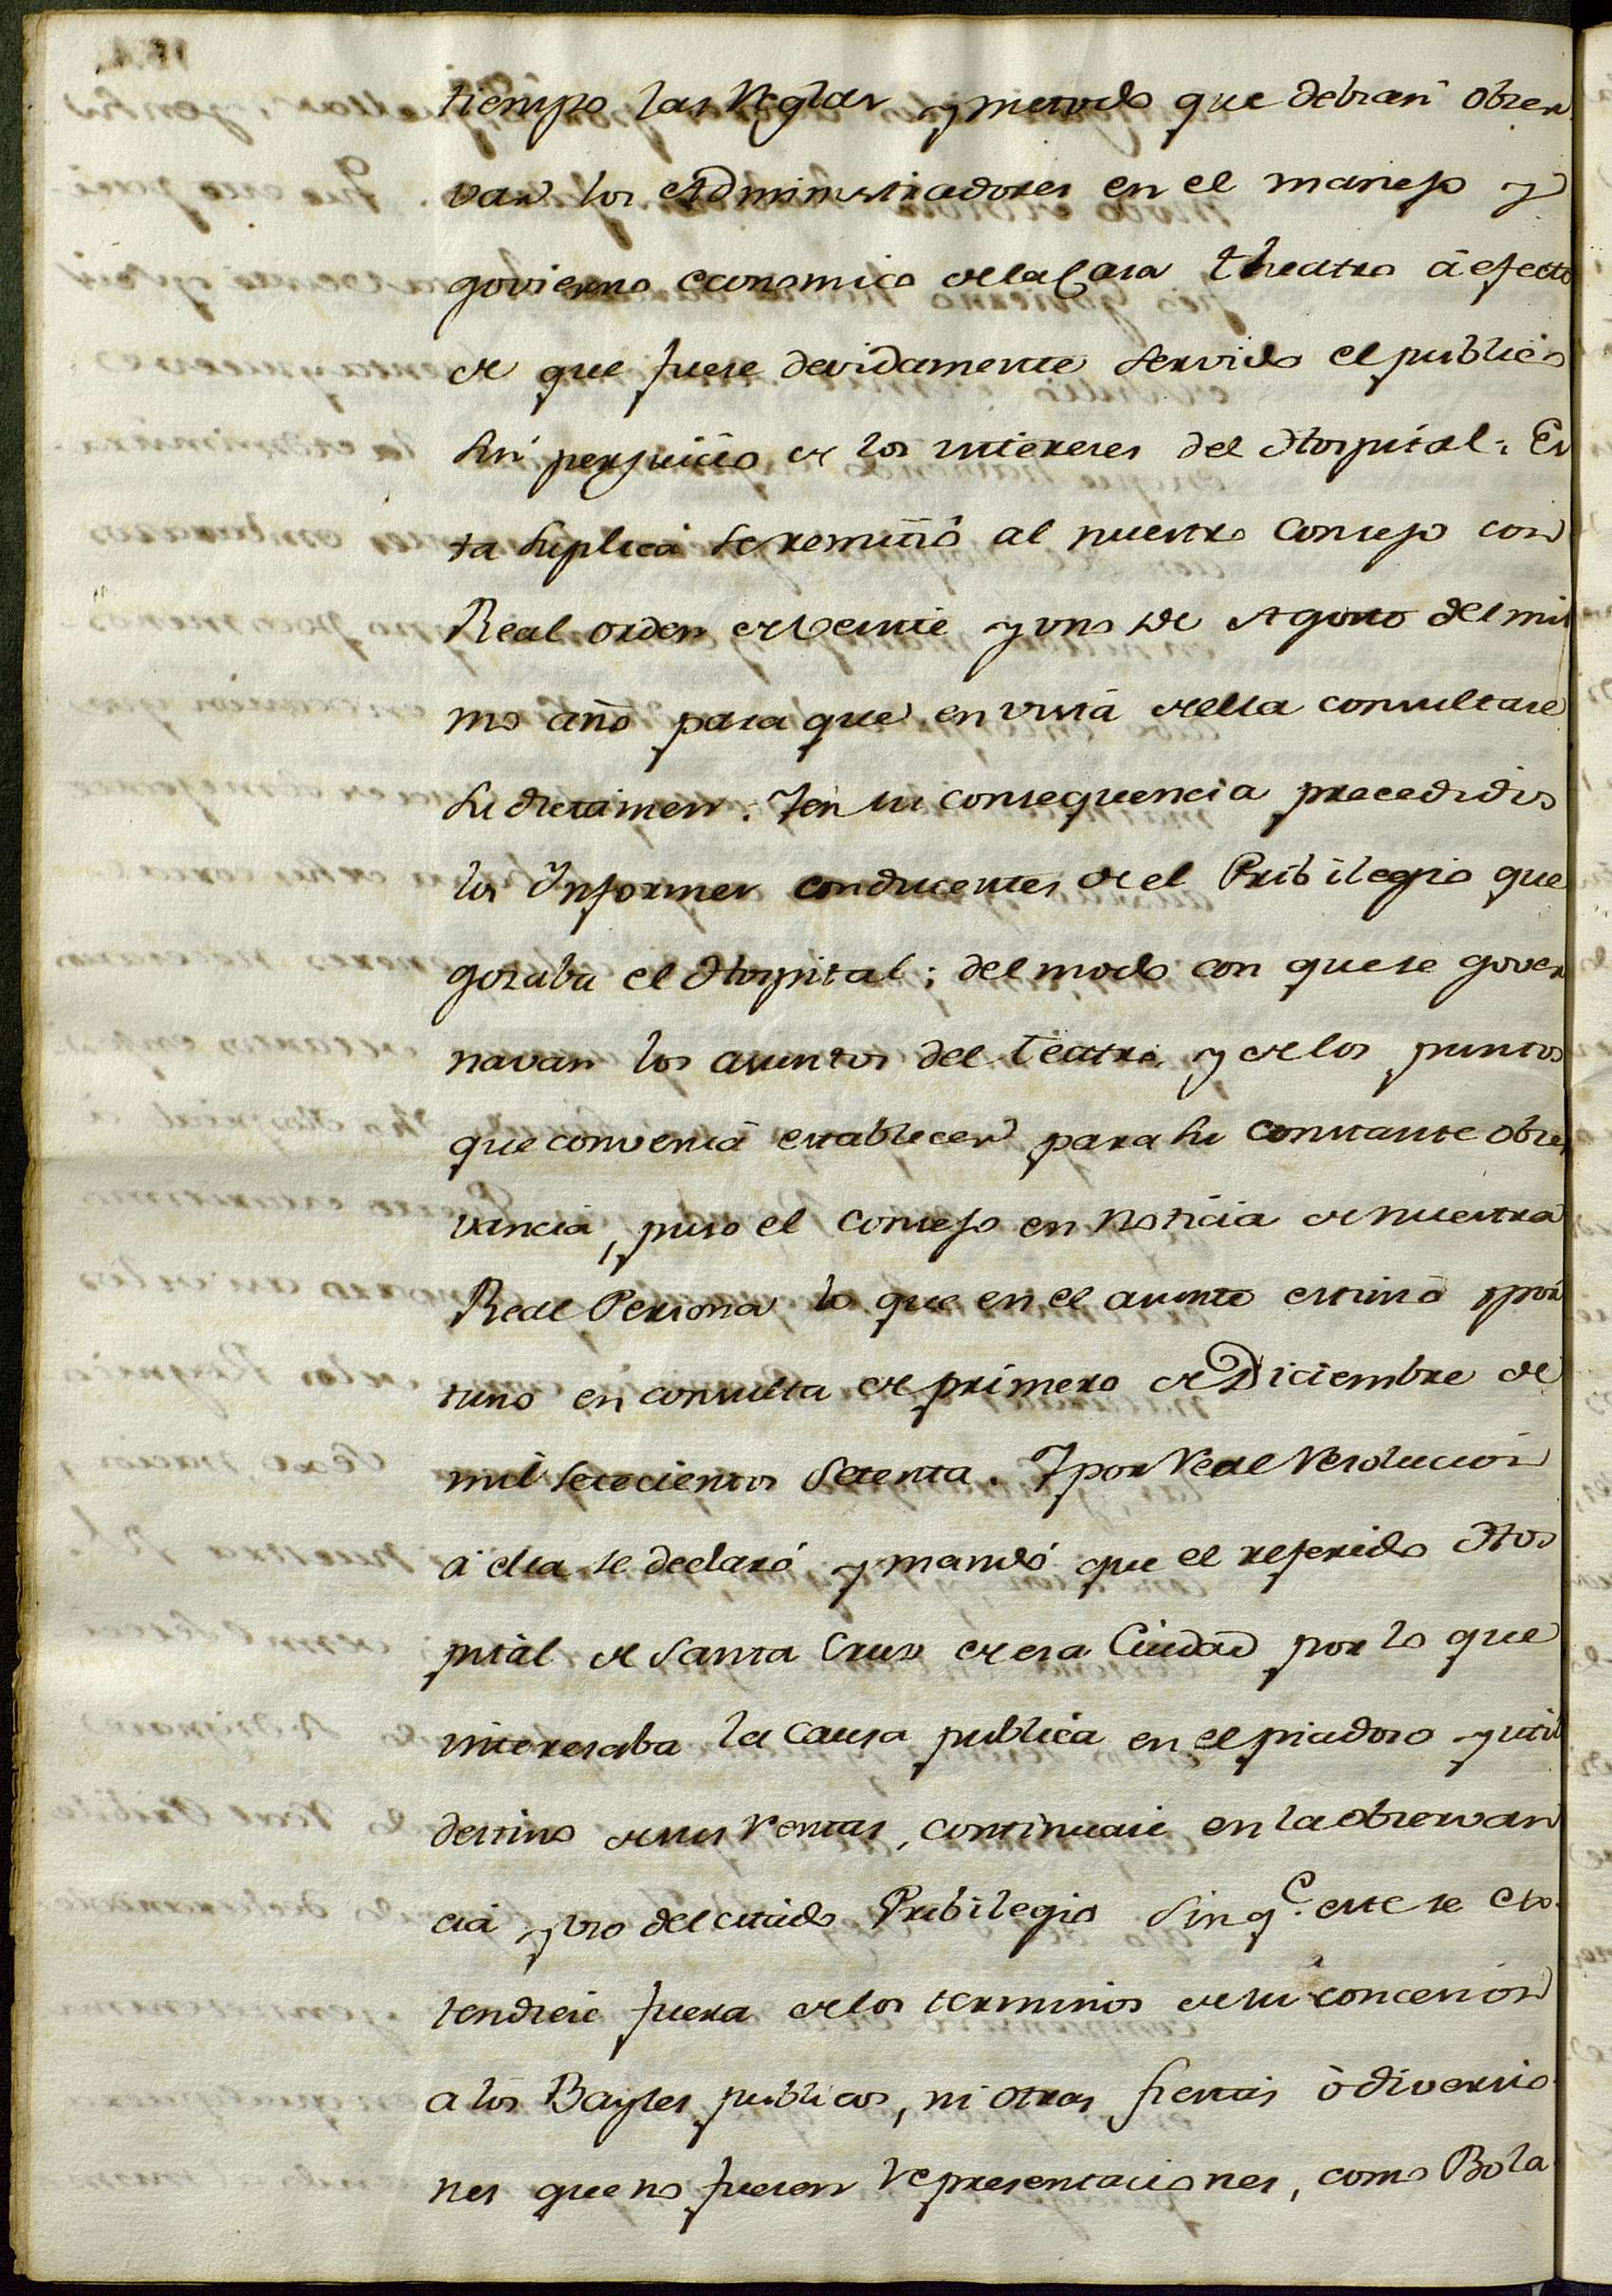 tiempo las Reglas y metodo que debian obser
var los Administradores en el manejo y
govierno economico dela Casa theatro á efecto
de que fuese devidamente servido el publico
sin perjuicio de los intereses del Hospital: Es
ta suplica se remitió al nuestro Consejo con
Real orden de veinte y uno de Agosto del mis
mo año para que en vista de ella consultase
su dictamen. Y en su consequencia precedidos
los Informes conducentes de el Pribilegio que
gozaba el Hospital; del modo con que se gover
navan los asuntos del teatro y de los puntos
que convenia establecer para su constante obser
vancia, puso el Consejo en noticia de nuestra
Real Persona lo que en el asunto estimó opor
tuno en consulta de primero de Diciembre de
mil setecientos setenta. Y por Real Resolucion
á ella se declaró y mandó que el referido Hos
pital de Santa Cruz de esa Ciudad por lo que
interesaba la causa publica en el piadoso y util
destino de sus Rentas, continuase en la observan
cia y uso del citado Pribilegio sin q.e este se ex
tendiese fuera de los terminos de su concesion
a los Bayles publicos, ni otras fiestas ò diversio
nes que no fuesen representaciones, como Bola